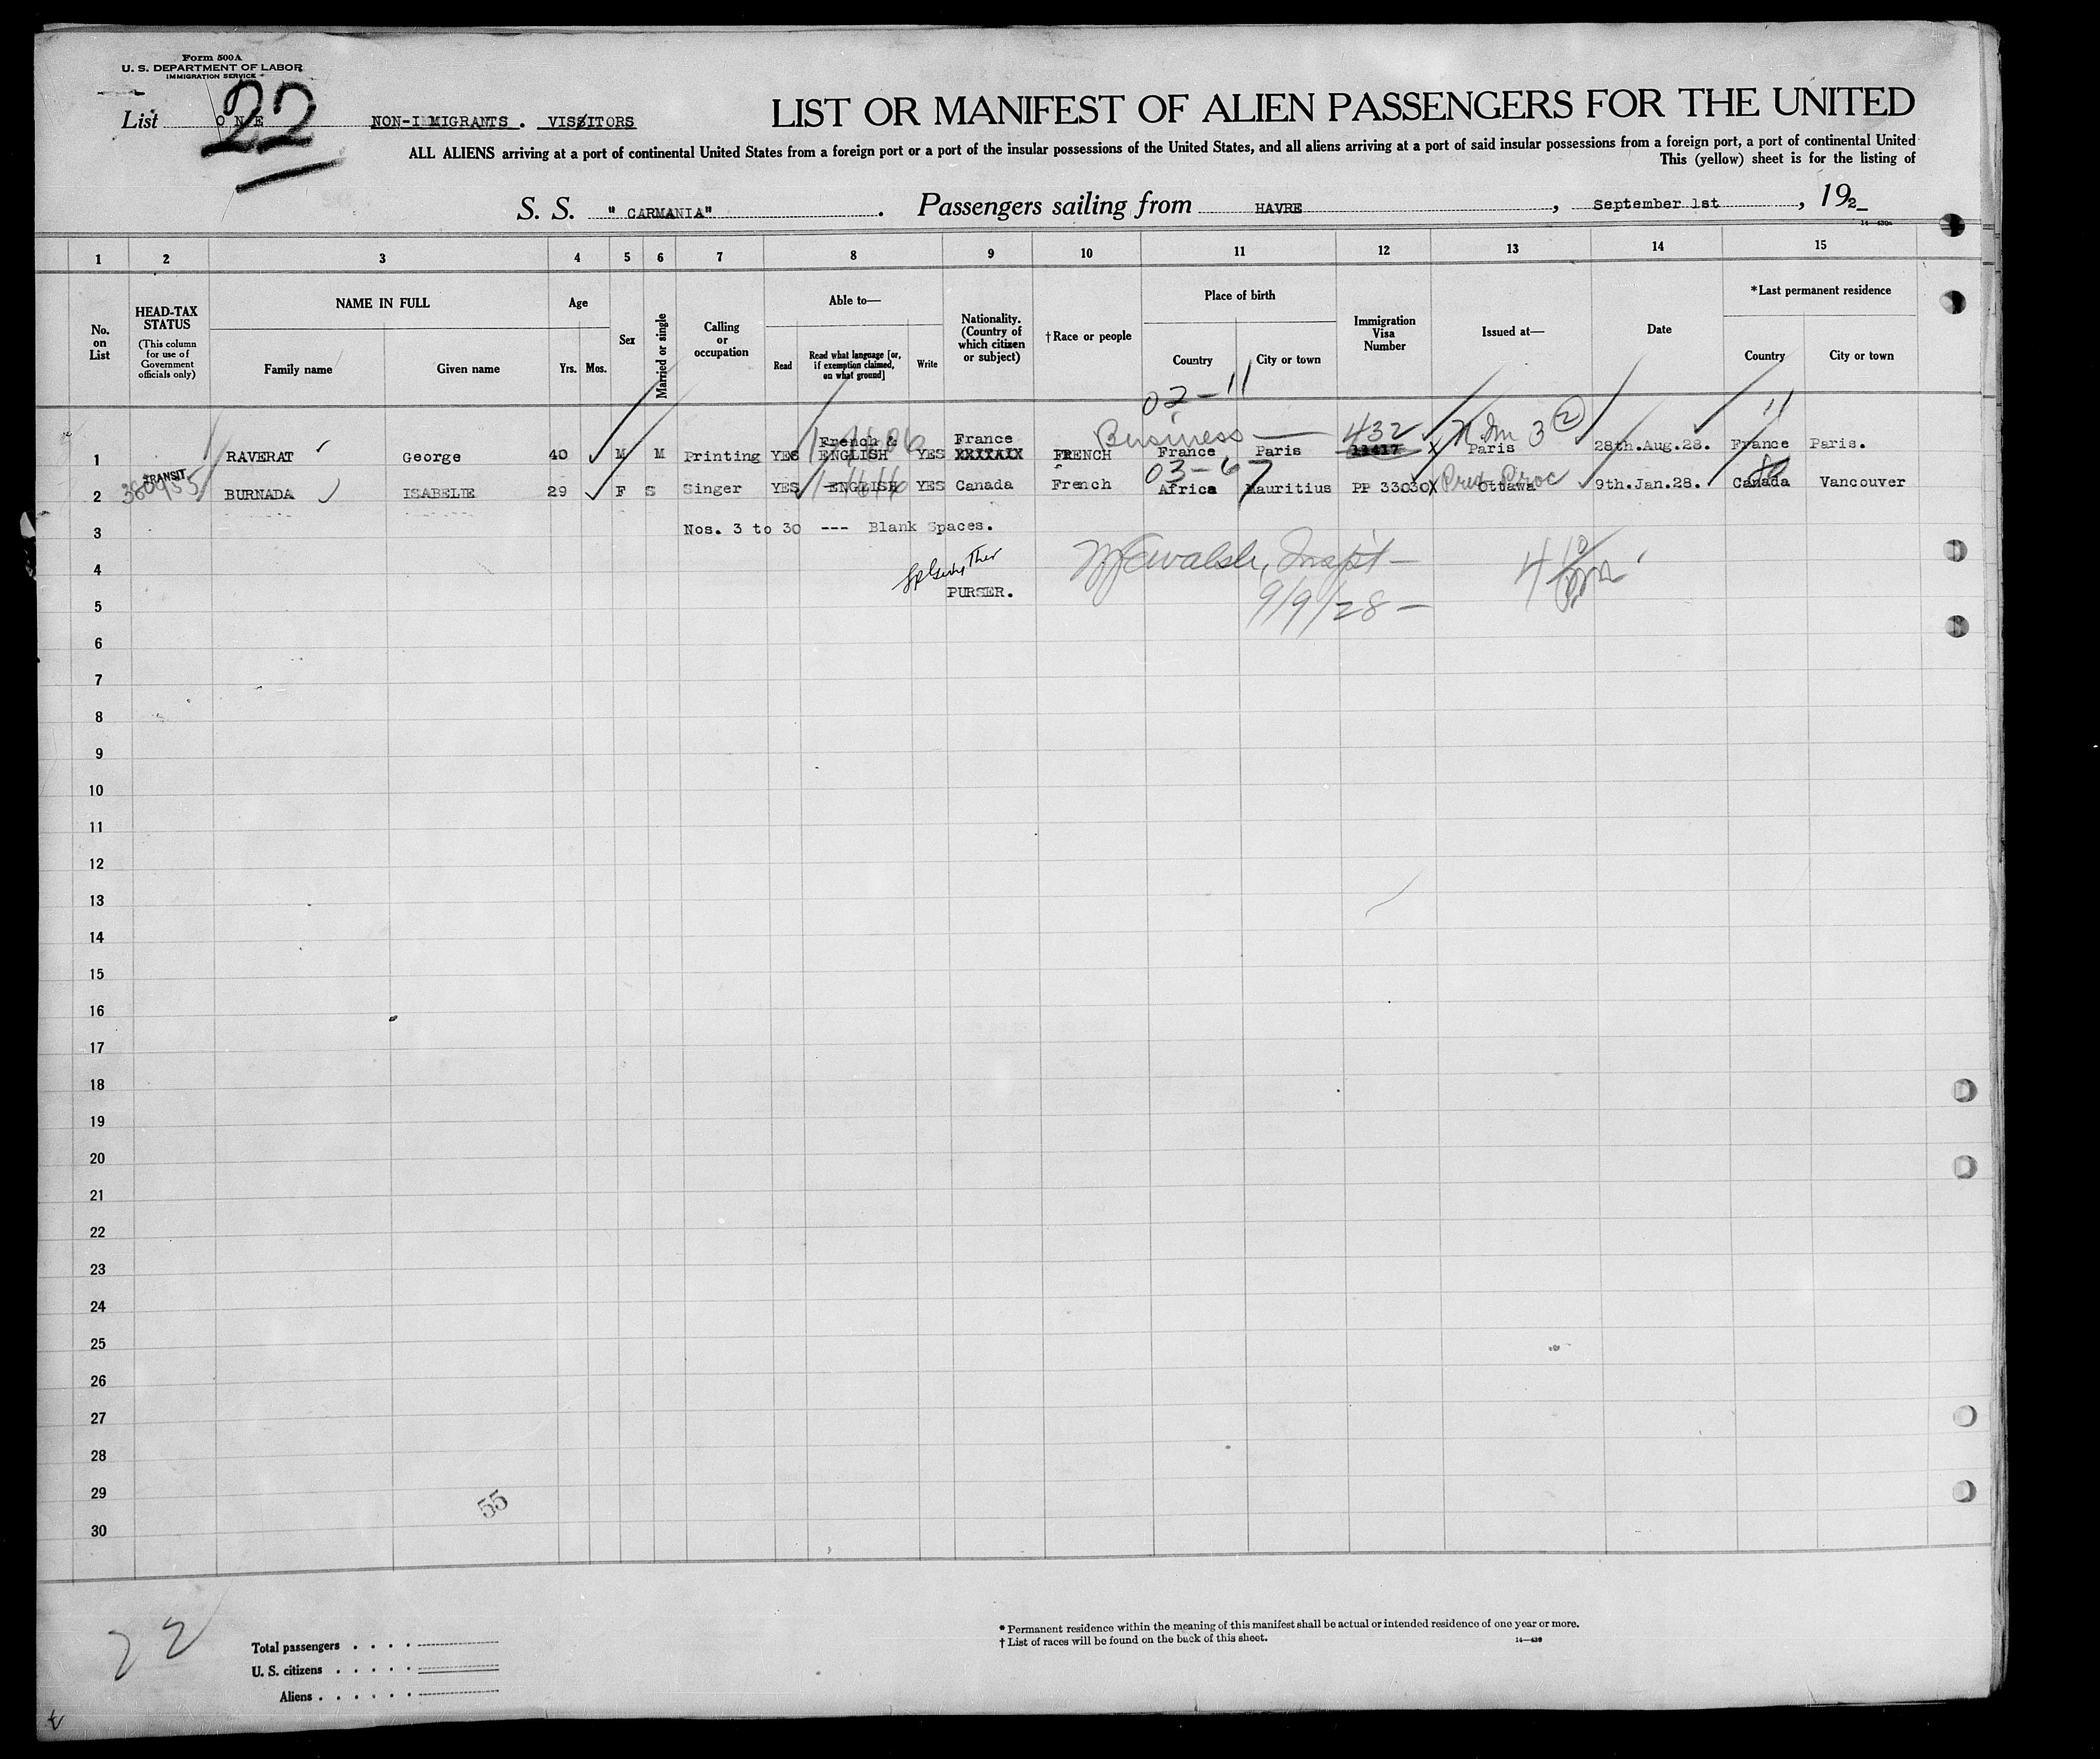 Form 500A
U. S. DEPARTMENT OF LABOR
IMMIGRATION SERVICE
22
List O N E NON-IMMIGRANTS . VISITORS
LIST OR MANIFEST OF ALIEN PASSENGERS FOR THE UNITED
ALL ALIENS arriving at a port of continental United States from a foreign port or a port of the insular possessions of the United States, and all aliens arriving at a port of said insular possessions from a foreign port, a port of continental United
This (yellow) sheet is for the listing of
S. S. " CARMANIA" . Passengers sailing from HAVRE , September 1st , 192_
1 2 3 4 5 6 7 8 9 10 11 12 13 14 15
No. on List
HEAD-TAX STATUS (This column for use of Government officials only)
NAME IN FULL
Family name Given name
Age
Yrs. Mos.
Sex
Married or single
Calling or occupation
Able to—
Read Read what language [or, if exemption claimed, on what ground] Write
Nationality. (Country of which citizen or subject)
†Race or people
Place of birth
Country City or town
Immigration Visa Number
Issued at—
Date
*Last permanent residence
Country City or town
02-11
Business 432 3 (2) 11
1 RAVERAT George 40 M M Printing YES French & ENGLISH YES France XXXXAIX FRENCH France Paris 11417 X Paris 28th.Aug.28. France Paris.
TRANSIT
380955 03-67
2 BURNADA ISABELIE 29 F S Singer YES ENGLISH YES Canada French Africa Mauritius PP 33030 X Ottawa 9th.Jan.28. Canada Vancouver
3 Nos. 3 to 30 --- Blank Spaces.
4 Walsh, Insp't -
PURSER.
5 9/9/28 -
6
7
8
9
10
11
12
13
14
15
16
17
18
19
20
21
22
23
24
25
26
27
28
29
55
30
22
Total passengers . . . .
U. S. citizens . . . . .
Aliens . . . . . .
* Permanent residence within the meaning of this manifest shall be actual or intended residence of one year or more.
† List of races will be found on the back of this sheet.
14—430